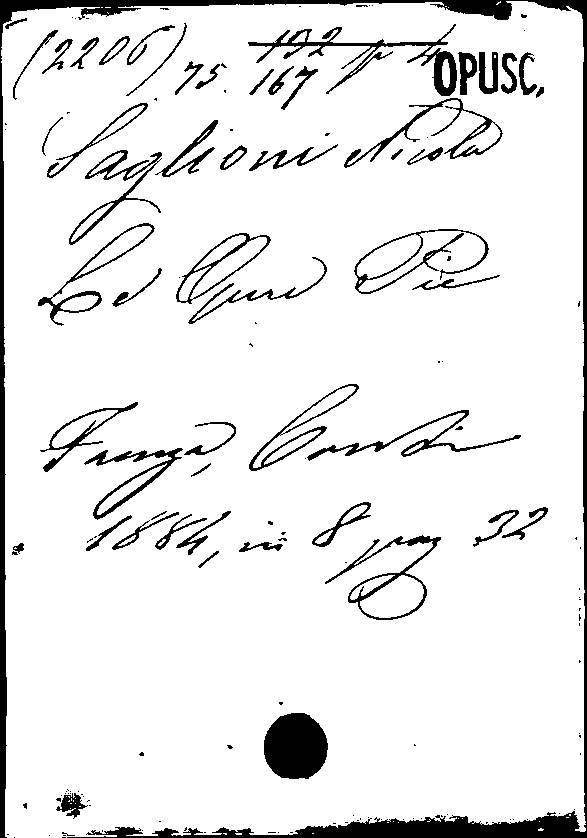 (2206) 192 p 4
75. 167 OPUSC.
Saglioni Nicola
Le Opere Pie
Firenze, Conti
1884, in 8 pag 32